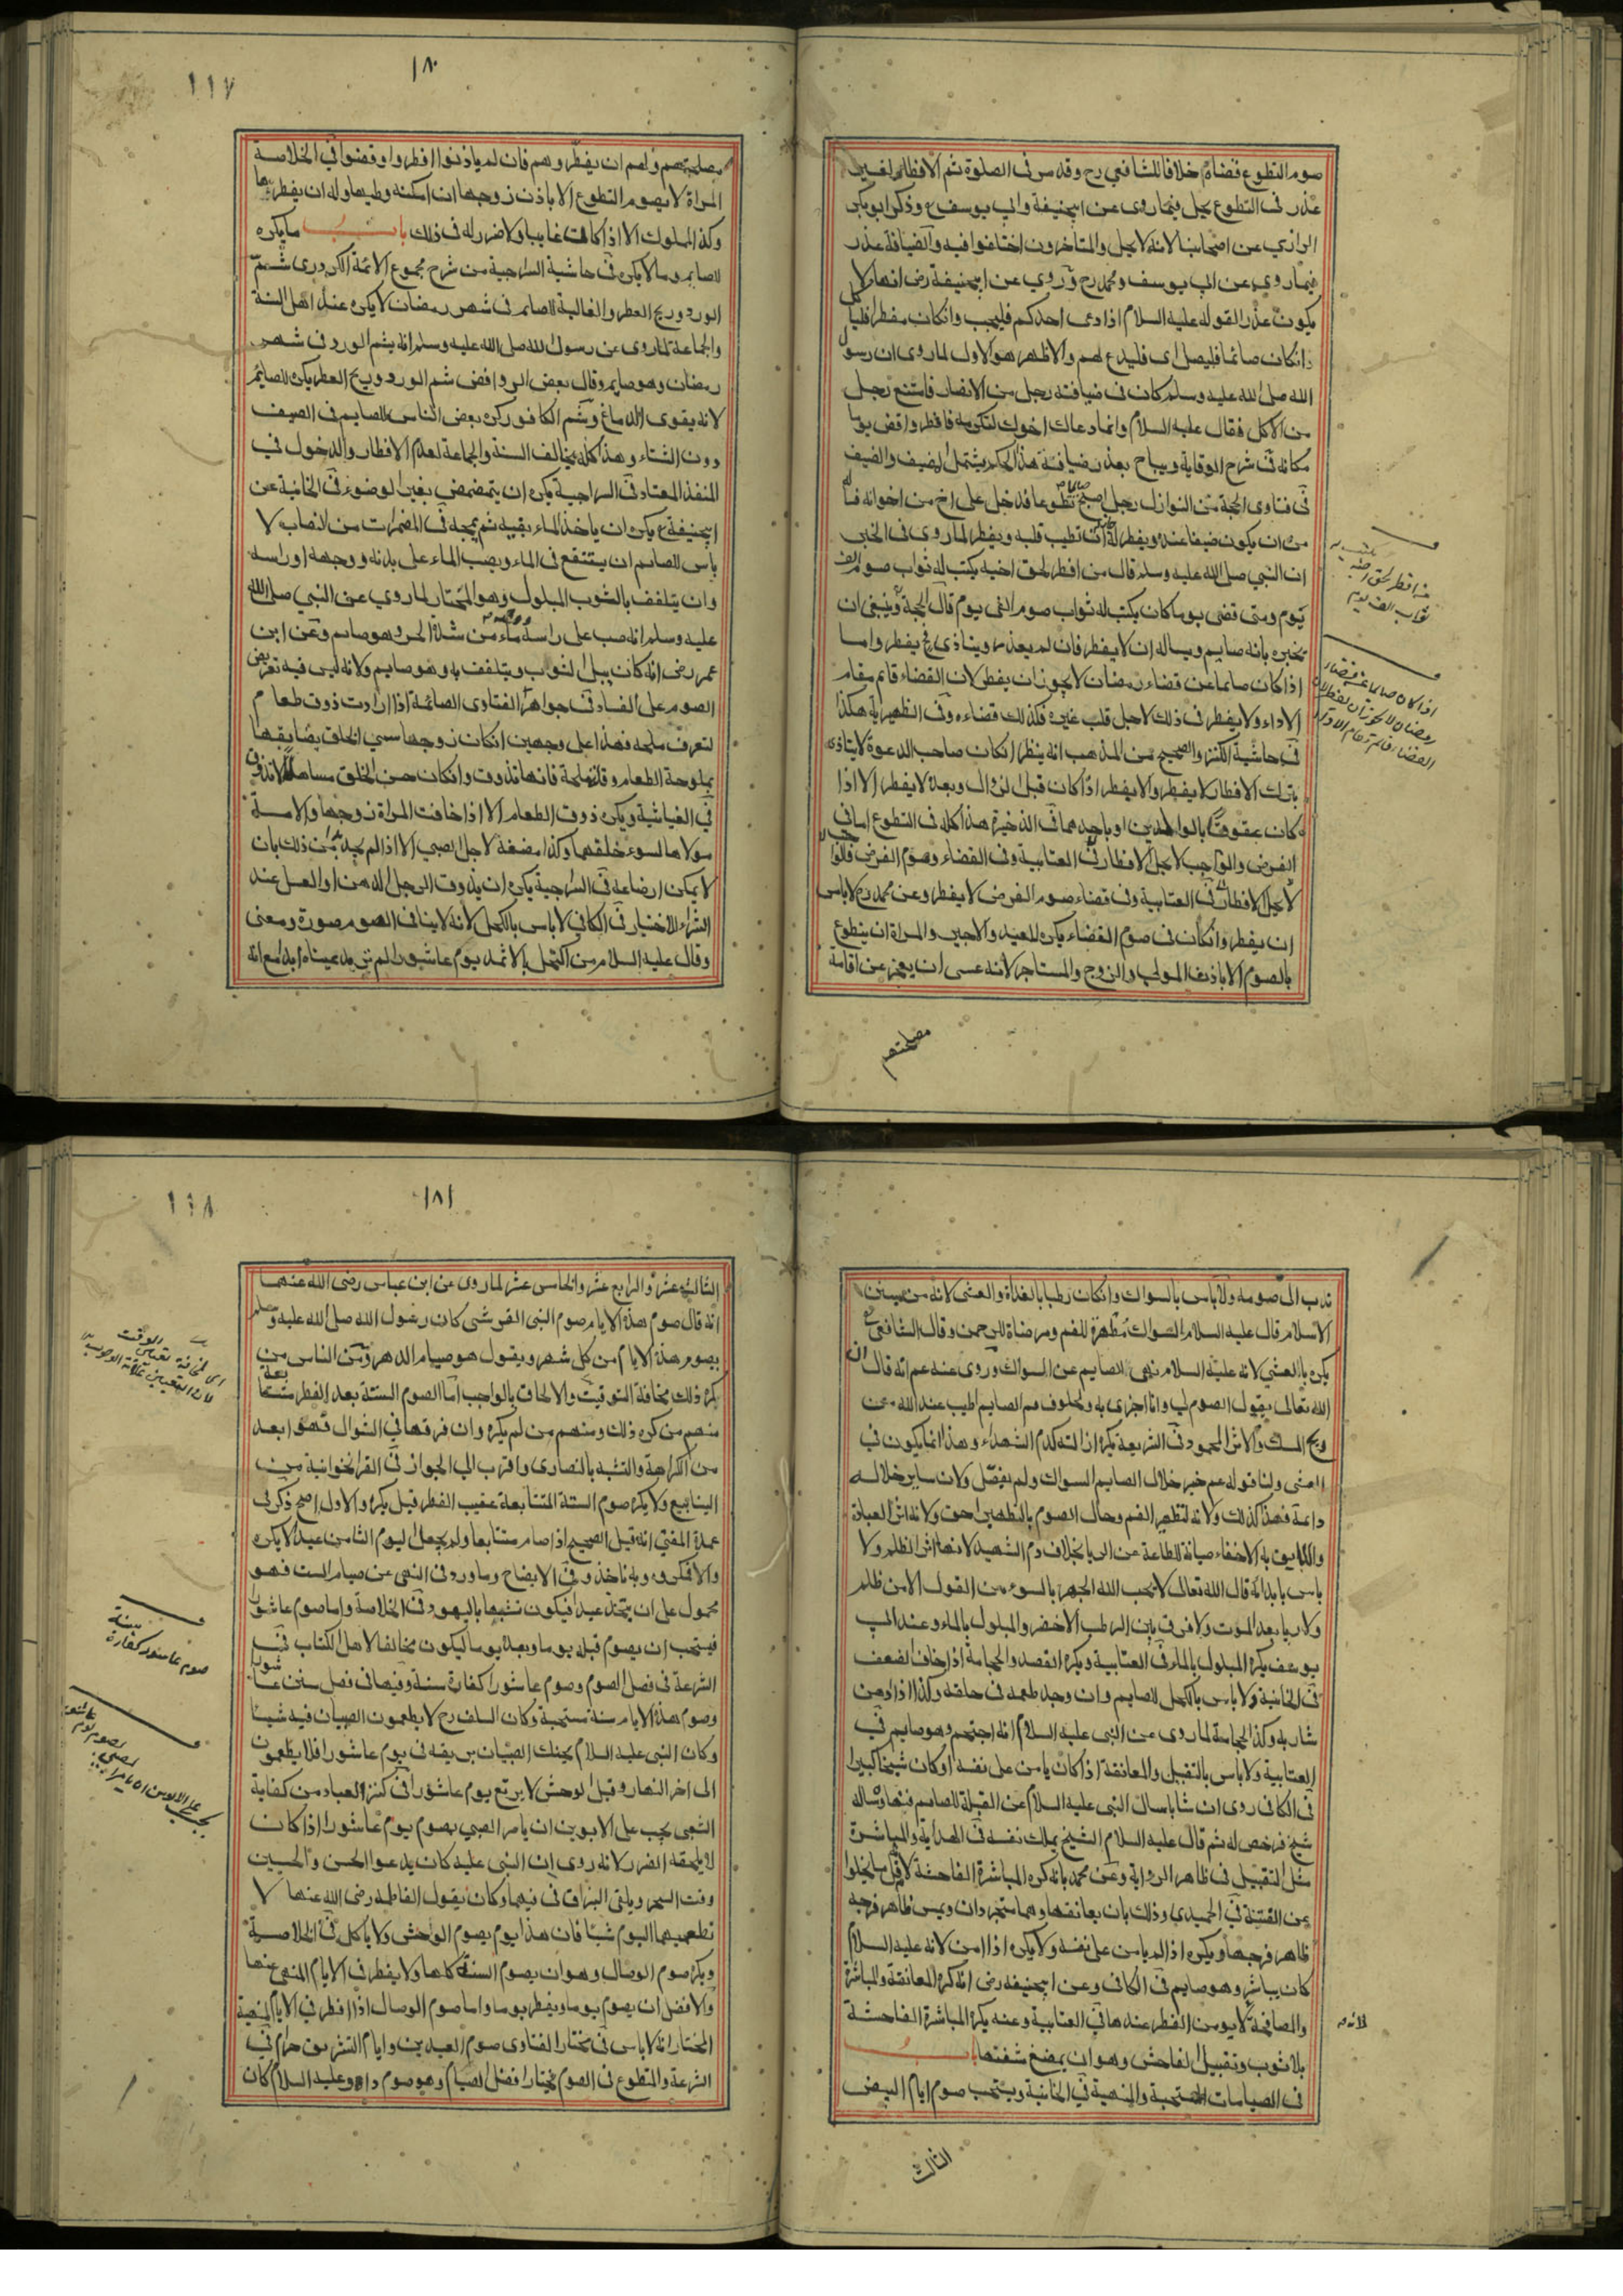 صوم التطوع قضاه خلافا للشافعي رح وقد مر فى الصلوة ثم الافطار لغير
عذر فى التطوع يحل فيما روى عن ابيحنيفة وابي يوسف وذكر ابو بكر
الرازي عن اصحابنا لانه لا يحل والمتاخرون اختلفوا فيه والضيافة عذر
فيما روي عن ابي يوسف ومحمد رح وروي عن ابيحنيفة رض انها لا
يكون عذرا لقوله عليه السلام اذا دعى احدكم فليجب وانكان مفطرا فليا كل
وانكان صائما فليصل اى فليدع لهم والاظهر هو الاول لما روى ان رسول
الله صلى الله عليه وسلم كان فى ضيافة رجل من الانصار فامتنع رجل
من الاكل فقال عليه السلام وانما دعاك اخوك لتكرمه فافطر واقض يوما
مكانه فى شرح الوقاية ويباح بعذر ضيافة هذا الحكم يشتمل المضيف والضيف
فى فتاوى الحجة من النوازل رجل اصبح صايما تطوعا فدخل على اخ من اخوانه
من ان يكون ضيفا عنده ويفطر تطيب قلبه ويفطر لما روى فى الخبر
ان النبي صلى الله عليه وسلم قال من افطر لحق اخيه يكتب له ثواب صوم الف
يوم ومتى قضى يوما كان يكتب له ثواب صوم الفى يوم قال الحجة وينبغى ان
يخبره بانه صايم ويساله ان لا يفطر فان لم يعذره ويتاذى يفطر واما
اذا كان صائما عن قضاء رمضان لا يجوز ان يفطر لان القضاء قايم مقام
الاداء ولا يفطر فى ذلك لاجل قلب غيره فكذلك قضاءه وفى الظهيرية هكذا
فى حاشية الكنز والصحيح من المذهب انه ينظر انكان صاحب الدعوة لا يتاذى
بترك الافطار لا يفطر والا يفطر اذا كان قبل الزوال وبعده لا يفطر الا اذا
كان عقوقا بالوالدين او باحدهما فى الذخيرة هذا كله فى التطوع اما فى
الفرض والواجب لا يحل الافطار فى العتابية وفى القضاء وصوم الفرض قالوا
لا يحل الافطار فى العتابية وفى قضاء صوم الفرض لا يفطر وعن محمد رح لا باس
ان يفطر وانكان فى صوم القضاء يكره للعبد والاجير والمراة ان يتطوع
بالصوم الا باذن المولى والزوج والمستاجر لانه عسى ان يعجز عن اقامة
مصلحتهم
من افطر لحق اخيه يكتب له
ثواب الف يوم
اذا كان صايما عن قضاء
رمضان لا يجوز ان يفطر لان
القضاء قائم مقام الاداء
١٨٠
١١٧
مصلحتهم ولهم ان يفطروهم فان لم ياذنوا افطروا وقضوا فى الخلاصة
المراة لا يصوم التطوع الا باذن زوجها ان امكنه وطيها وله ان يفطرها
وكذا المملوك الا اذا كان غايبا ولا ضرر له فى ذلك باب ما يكره
للصايم وما لا يكره فى حاشية السراجية من شرح مجموع الائمة الكردرى شم
الورد وريح العطر والغالية للصايم فى شهر رمضان لا يكره عند اهل السنة
والجماعة لما روى عن رسول الله صلى الله عليه وسلم انه يشم الورد فى شهر
رمضان وهو صايم وقال بعض الروافض شم الورد وريح العطر يكره للصايم
لانه يقوى الدماغ وشم الكافور كره بعض الناس للصايم فى الصيف
دون الشتاء وهذا كله يخالف السنة والجماعة لعدم الافطار والدخول فى
المنفذ المعتاد فى السراجية يكره ان يتمضمض بغير الوضوء فى الخانية عن
ابيحنيفة يكره ان ياخذ الماء بفيه ثم يمجه فى المضمرات من النصاب لا
باس للصايم ان يستنقع فى الماء ويصب الماء على بدنه ووجهه او راسه
وان يتلفف بالثوب المبلول وهو المختار لما روي عن النبي صلى الله
عليه وسلم انه صب على راسه ووجهه ماء من شدة الحر وهو صايم وعن ابن
عمر رضى انه كان يبل الثوب ويتلفف به وهو صايم ولانه ليس فيه تعريض
الصوم على الفساد فى جواهر الفتاوى الصائمة اذا ارادت ذوق طعام
لتعرف ملحه فهذا على وجهين انكان زوجها سيى الخلق يضايقها
بملوحة الطعام وقلة ملحة فانها تذوق وانكان حسن الخلق مساهلا لا تذوق
فى الغياثية ويكره ذوق الطعام الا اذا خافت المراة زوجها والامة
مولاها لسوء خلقهما وكذا مضغة لاجل الصبي الا اذا لم يجد من ذلك بان
لا يمكن ارضاعه فى السراجية يكره ان يذوق الرجل الدهن او العسل عند
الشراء للاختيار فى الكافي لا باس بالكحل لانه لا ينافى الصوم صورة ومعنى
وقال عليه السلام من اكتحل بالاثمد يوم عاشورا لم ترمد عيناه ابدا مع انه
ندب الى صومه ولا باس بالسواك وانكان رطبا بالغداة والعشى لانه من سنن
الاسلام قال عليه السلام السواك مطهرة للفم ومرضاة للرحمن وقال الشافعي
يكره بالعشي لانه عليه السلام نهى الصايم عن السواك وروى عنه عم انه قال ان
الله تعالى يقول الصوم لي وانا اجزى به ولخلوف فم الصايم اطيب عند الله من
ريح المسك والاثر المحمود فى الشريعة يكره ازالته كدم الشهداء وهذا انما يكون فى
العشى ولنا قوله عم خير خلال الصايم السواك ولم يفصل ولان ساير خلاله
دائمة فهذا كذلك ولانه لتطهير الفم وحال الصوم بالتطهير احق ولانه اثر العبادة
واللايق به الاخفاء صيانة للطاعة عن الريا بخلاف دم الشهيد لانها اثر الظلم ولا
باس بابدائه قال الله تعالى لا يحب الله الجهر بالسوء من القول الا من ظلم
ولا ريا بعد الموت ولا فرق بين الرطب الاخضر والمبلول بالماء وعند ابي
يوسف يكره المبلول بالماء فى العتابية ويكره الفصد والحجامة اذا خاف الضعف
فى الخانية ولا باس بالكحل للصايم وان وجد طعمه فى حلقه وكذا اذا دهن
شاربه وكذا الحجامة لما روى عن النبى عليه السلام انه احتجم وهو صايم فى
العتابية ولا باس بالتقبيل والمعانقة اذا كان يامن على نفسه او كان شيخا كبيرا
فى الكافى روى ان شابا سال النبى عليه السلام عن القبلة للصايم فنهاه وساله
شيخ فرخص له ثم قال عليه السلام الشيخ يملك نفسه فى الهداية والمباشرة
مثل التقبيل فى ظاهر الرواية وعن محمد بانه كره المباشرة الفاحشة لانه قل ما يخلوا
عن الفتنة فى الحميدي وذلك بان يعانقها وهما متجردان ويمس ظاهر فرجه
ظاهر فرجها ويكره اذا لم يامن على نفسه ولا يكره اذا امن لانه عليه السلام
كان يباشر وهو صايم فى الكافى وعن ابيحنيفه رض انه كره المعانقة والمباشرة
والمصافحة لا يومن الفطر عندها فى العتابية وعنه يكره المباشرة الفاحشة
بلا ثوب وتقبيل الفاحش وهو ان يمضغ شفتها باب
فى الصيامات المستحبة والمنهية فى الخانية ويستحب صوم ايام البيض
لانه
الثالث
١٨١
١١٨
الثالث عشر والرابع عشر والخامس عشر لما روى عن ابن عباس رضى الله عنهما
انه قال صوم هذه الايام صوم النبى القرشى كان رسول الله صلى الله عليه وسلم
يصوم هذه الايام من كل شهر ويقول هو صيام الدهر ومن الناس من
كره ذلك مخافة التوقيت والالحاق بالواجب اما الصوم الستة بعد الفطر متتابعة
منهم من كره ذلك ومنهم من لم يكره وان فرقها في الشوال فهو ابعد
من الكراهة والتشبه بالنصارى واقرب الي الجواز فى القراخوانية من
الينابيع ولا يكره صوم الستة المتتابعة عقيب الفطر قيل يكره والاول اصح ذكر فى
عمدة المفتى انه قيل الصحيح اذا صام متتابعا ولم يجعل اليوم الثامن عيدا لا يكره
والا فمكروه وبه ناخذ وفى الايضاح وما ورد فى النهى عن صيام الست فهو
محمول على ان يتخذ عيدا فيكون تشبها باليهود فى الخلاصة واما صوم عاشورا
فيستحب ان يصوم قبله يوما وبعده يوما ليكون مخالفا لاهل الكتاب فى
الشرعة فى فصل الصوم وصوم عاشورا كفارة سنة وفيها فى فصل سنن عاشورا
وصوم هذه الايام سنة مستحبة وكان السلف رح لا يطعمون الصبيان فيه شيئا
وكان النبى عليه السلام يحنك الصبيان بريقه فى يوم عاشورا فلا يطعمون
الى اخر النهار وقيل الوحش لا يرتع يوم عاشورا فى كنز العباد من كفاية
الشعبى يجب على الابوين ان يامر الصبي بصوم يوم عاشورا اذا كان
لا يلحقه الضرر لانه روى ان النبى عليه كان يدعوا الحسن والحسين
وقت السحر ويلقى البزاق فى فيهما وكان يقول لفاطمه رضى الله عنها لا
تطعميهما اليوم شيئا فان هذا يوم يصوم الوحش ولا ياكل فى الخلاصة
ويكره صوم الوصال وهو ان يصوم السنة كلها ولا يفطر فى الايام المنهى عنها
والافضل ان يصوم يوما ويفطر يوما واما صوم الوصال اذا افطر فى الايام المنهية
المختار انه لا باس فى مختار الفتاوى صوم العيدين وايام التشريق حرام فى
الشرعة والمتطوع فى الصوم يختار افضل الصيام وهو صوم داود عليه السلام كان
اى مخافة تعيين الوقت
لان التعيين علامة الوجوب
صوم عاشورا كفارة سنة
يجب على الابوين ان يامرا
الصبي بصوم يوم
عاشورا